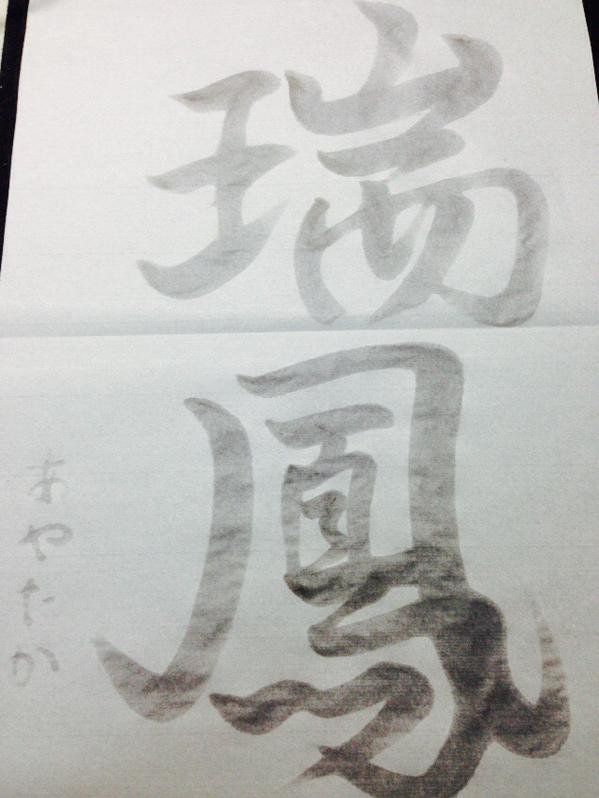 瑞鳳
あやたか